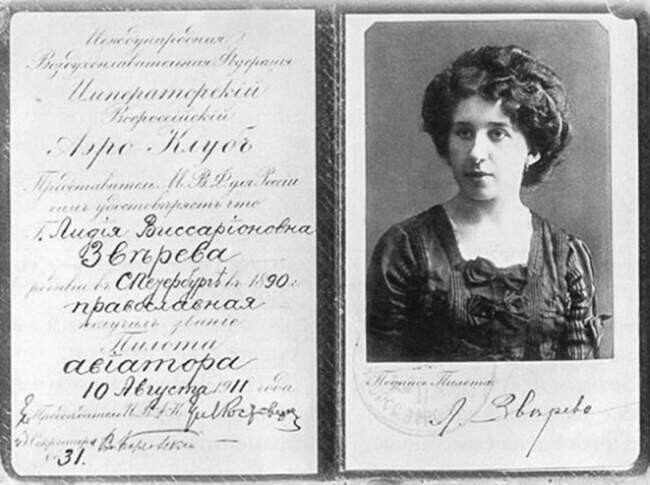 Международная
Воздухоплавательная Федерація
Императорскій
Всероссійскій
Аэро-Клубъ
Представитель М. В. Ф. для Россіи
симъ удостовѣряетъ что
Г. Лидія Виссаріоновна
Звѣрева
въ СПетербургѣ въ 1890 г.
православная
получилъ званіе
Пилота
авіатора
10 Августа 1911 года
Председатель И. В. А. К.
Секретарь
31.
Подпись Пилота
Л. Звѣрева